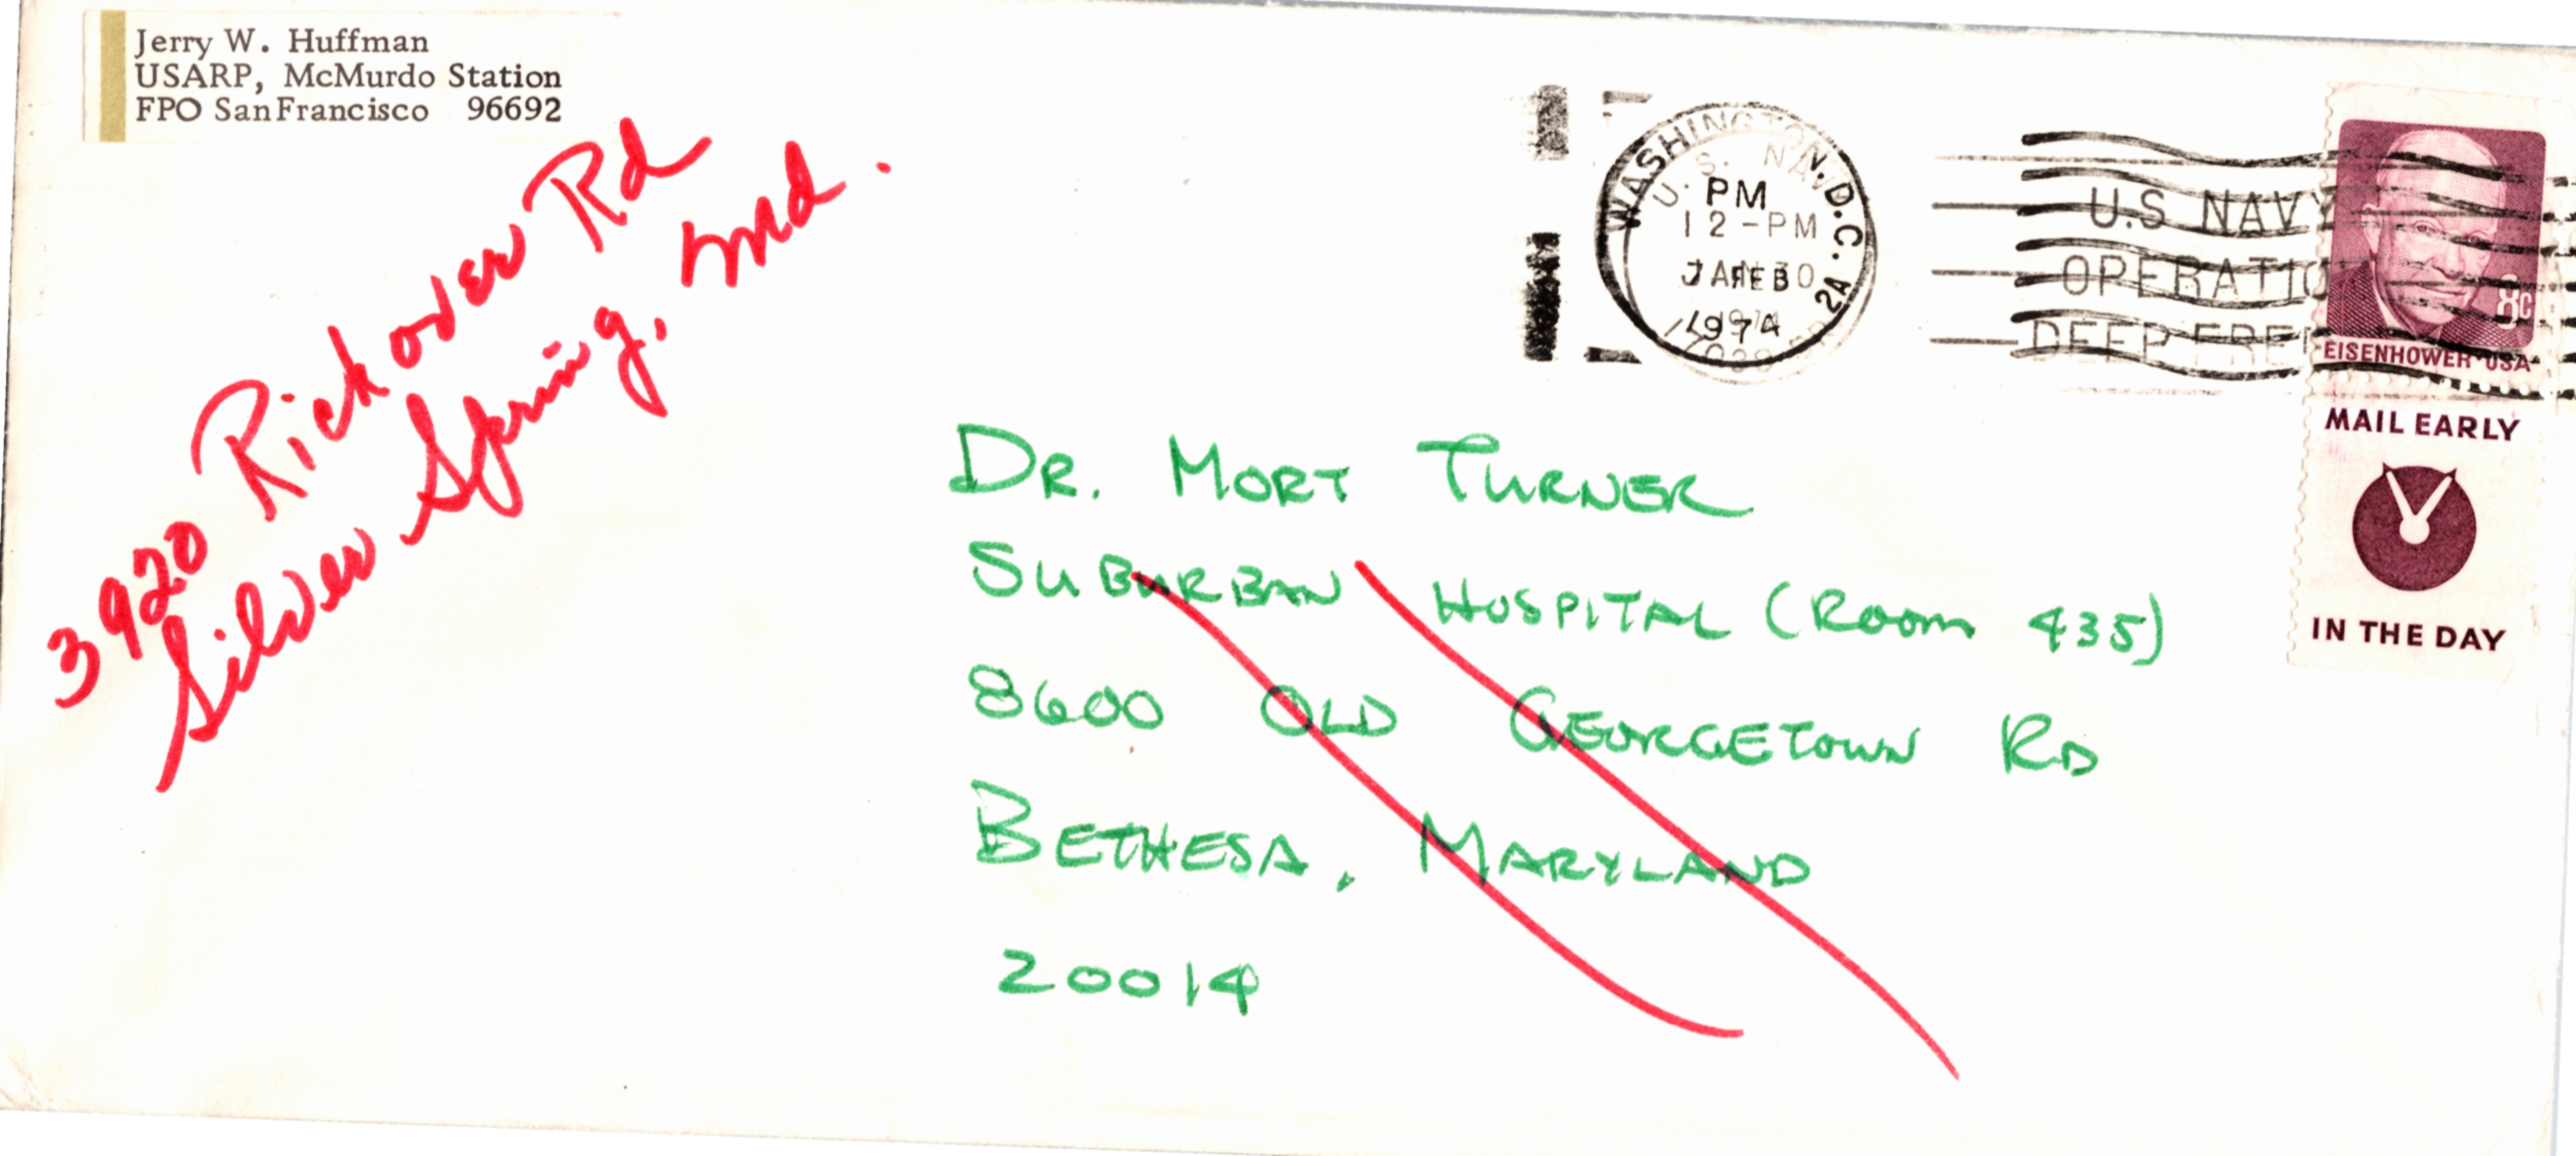 Jerry W. Huffman
USARP, McMurdo Station
FPO San Francisco 96692
3920 Rickover Rd
Silver Spring, Md.
WASHINGTON, D.C.
U.S. NAV
PM
12-PM
JAN 30
FEB
1974
2A
U.S NAVY
OPERATIO
DEEP FREE
8c
EISENHOWER·USA
MAIL EARLY
IN THE DAY
DR. MORT TURNER
SUBURBAN HOSPITAL (ROOM 435)
8600 OLD GEORGETOWN RD
BETHESA, MARYLAND
20014